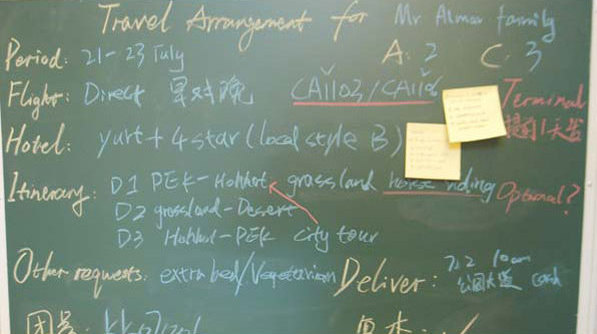 Travel Arrangement for Mr Almar family
A: 2 C: 3
Period: 21-23 July
Flight: Direct 早对晚 CA1103/CA1102 Terminal
Hotel: yurt + 4 star (local style B) 提前1天签
Itinerary: D1 PEK-Hohhot grassland horse riding Optional?
D2 grassland-Desert
D3 Hohhot-PEK city tour
Other requests: extra bed/Vegetarian Deliver: 7.2 10am
card
团号: